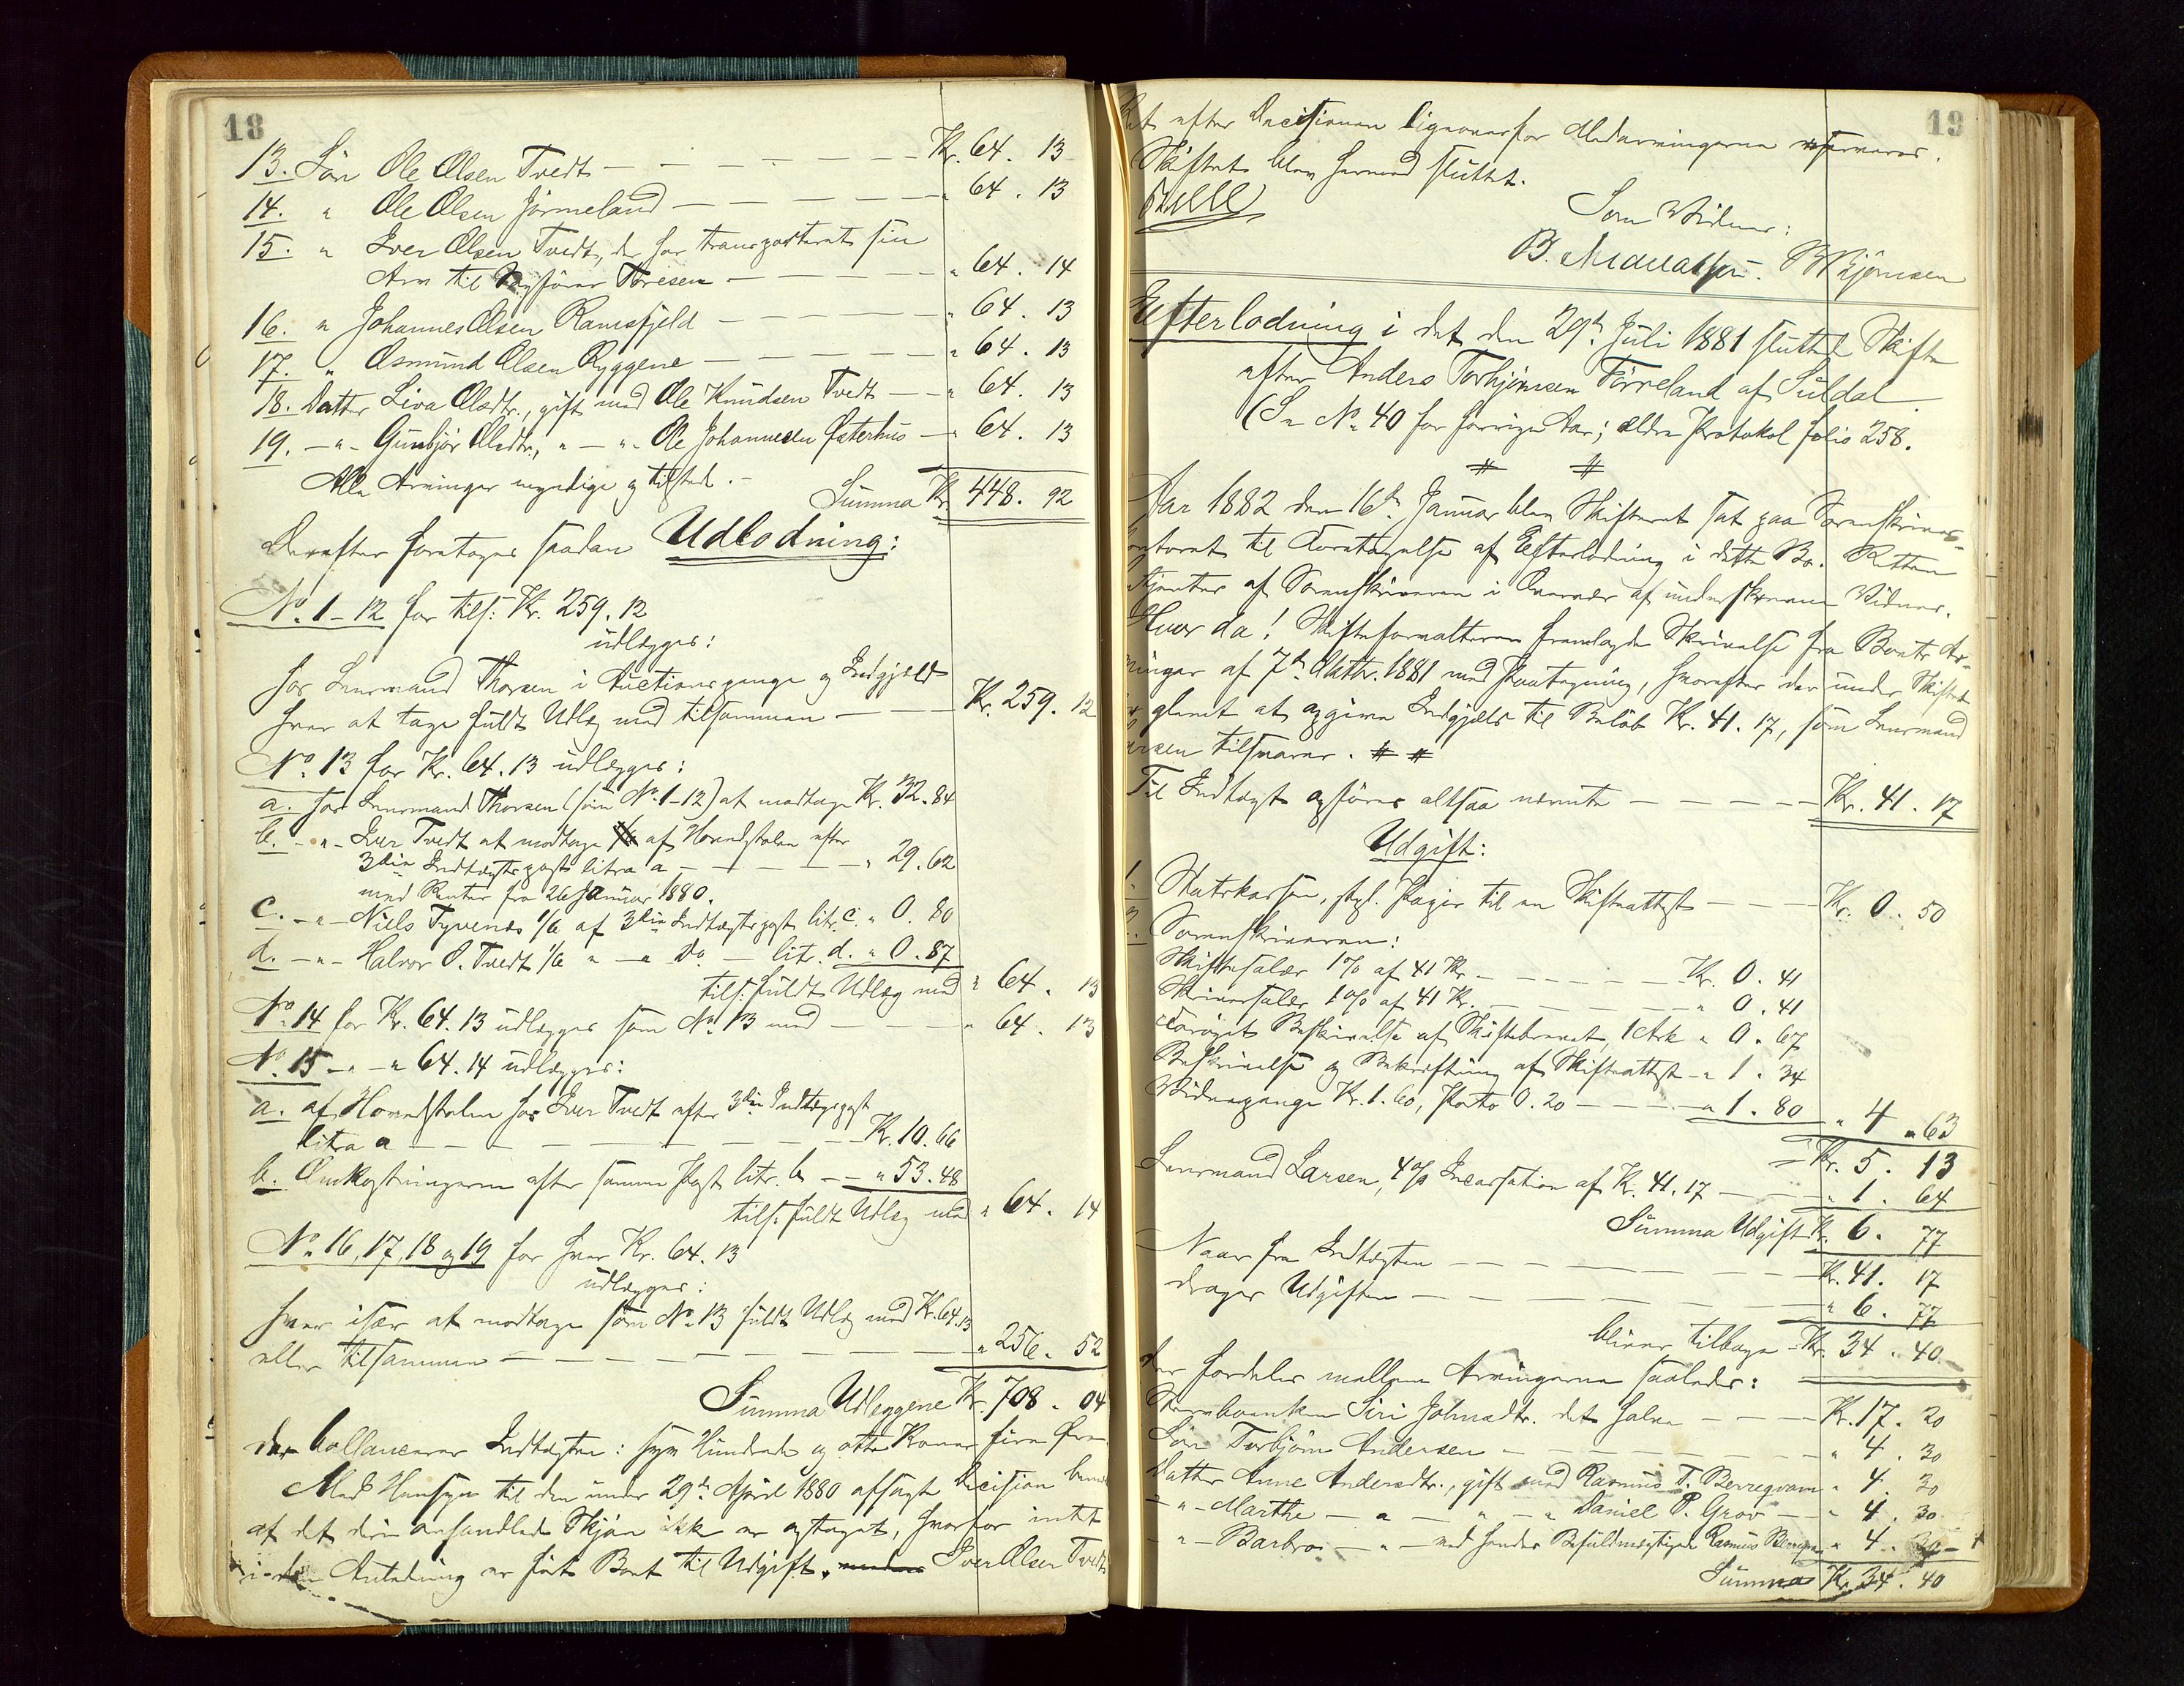 18
13. Søn Ole Olsen Tvedt — — — — — Kr. 64. 13
14. " Ole Olsen Jørmeland — — — — — " 64. 13
15. " Iver Olsen Tvedt, der har transporteret sin
Arv til Toresen — — — — — " 64. 14
16. " Johannes Olsen Ramsfjeld — — — — " 64. 13
17. " Osmund Olsen Ryggene — — — — " 64. 13
18. Datter Liva Olsdtr., gift med Ole Knudsen Tvedt — — " 64. 13
19. — " — Gunbjør Olsdtr., " — " Ole Johannesen Østerhus — " 64. 13
Alle Arvinger myndige og tilstede. —
Summa Kr. 448. 92
Derefter foretoges saadan Udlodning:
No. 1–12 for tils: Kr. 259. 12
udlægges:
hos Lensmand Thorsen i Auctionspenge og Indgjæld
hver at tage fuldt Udlæg med tilsammen — — — Kr. 259. 12
No. 13 for Kr. 64. 13 udlægges:
a. hos Lensmand Thorsen (som No. 1–12) at modtage Kr. 32. 84
b. — " — Iver Tvedt at modtage af Hovedstolen efter
3die Indtægtspost litra a — — — — " 29. 62
med Renter fra 26 Januar 1880.
c. — " — Niels Tyvenes 1/6 af 3die Indtægtspost litr. c. " 0. 80
d. — " — Halvor O. Tvedt 1/6 " — " Do. — litr. d. " 0. 87
tils: fuldt Udlæg med " 64. 13
No. 14 for Kr. 64. 13 udlægges som No. 13 med — — — " 64. 13
No. 15 — " — " 64. 14 udlægges:
a. af Hovedstolen hos Iver Tvedt efter 3die Indtægtspost
litra a — — — — — — — Kr. 10. 66
b. Omkostningerne efter samme Post litr. b — — " 53. 48
tils: fuldt Udlæg med " 64. 14
No. 16, 17, 18 og 19 for hver Kr. 64. 13
udlægges:
hver især at modtage som No. 13 fuldt Udlæg med Kr. 64.13
eller tilsammen — — — — — — — " 256. 52
Summa Udlæggene Kr. 708. 04
der ballancerer Indtægten: syv Hundrede og otte Kroner fire Øre
Med Hensyn til den under 29de April 1880 afsagte Decision
at det deri omhandlede Skjøn ikke er optaget, hvorfor intet
i den Anledning er ført Boet til Udgift. Iver Olsen Tvedt
19
Det efter Decisionen ligeoverfor Medarvingerne .
Skiftet blev hermed sluttet.
Som Vidner:
B. BBjørnsen
Efterlodning i det den 29de Juli 1881 sluttede Skifte
efter Anders Torbjørnsen Førreland af Suldal
(Se No. 40 for forrige Aar; ældre Protokol folio 258.
# #
Aar 1882 den 16de Januar blev Skifteret sat paa Sorenskriver-
kontoret til Foretagelse af Efterlodning i dette Bo. Retten
betjentes af Sorenskriveren i Overvær af underskrevne Vidner.
Hvor da! Skifteforvalteren fremlagde Skrivelse fra Boets Ar-
vinger af 7de Oktbr. 1881 med Paategning, hvorefter der under Skiftet
er glemt at opgive Indgjæld til Beløb Kr. 41. 17, som Lensmand
Larsen tilsvarer. # #
Til Indtægt opføres altsaa nævnte — — — — Kr. 41. 17
Udgift:
1. Statskassen, stpl. Papir til en Skifteattest — — — Kr. 0. 50
2. Sorenskriveren:
Skiftesalær 1% af 41 Kr. — — — — Kr. 0. 41
Skriversalær 1% af 41 Kr. — — — — " 0. 41
Forøget Beskrivelse af Skiftebrevet, 1 Ark " 0. 67
Beskrivelse og Bekræftning af Skifteattest — " 1. 34
Vidnepenge Kr. 1. 60, Porto 0. 20 — — — " 1. 80 " 4 " 63
Kr. 5. 13
Lensmand Larsen, 4% Incassation af Kr. 41. 17 — — — " 1. 64
Summa Udgift Kr. 6. 77
Naar fra Indtægten — — — — — Kr. 41. 17
drages Udgiften — — — — — " 6. 77
bliver tilbage — Kr. 34. 40
der fordeles mellem Arvingerne saaledes:
Stervboenken Siri Johnsdtr. det halve — — — Kr. 17. 20
Søn Torbjørn Andersen — — — — — " 4. 30
Datter Anne Andersdtr., gift med Rasmus T. Berreqvam " 4. 30
— " — Marthe — " — " — " Daniel P. Grov — — " 4. 30
— " — Barbro — " — med hendes Befuldmægtigede Rasmus " 4. 30
Summa Kr. 34. 40